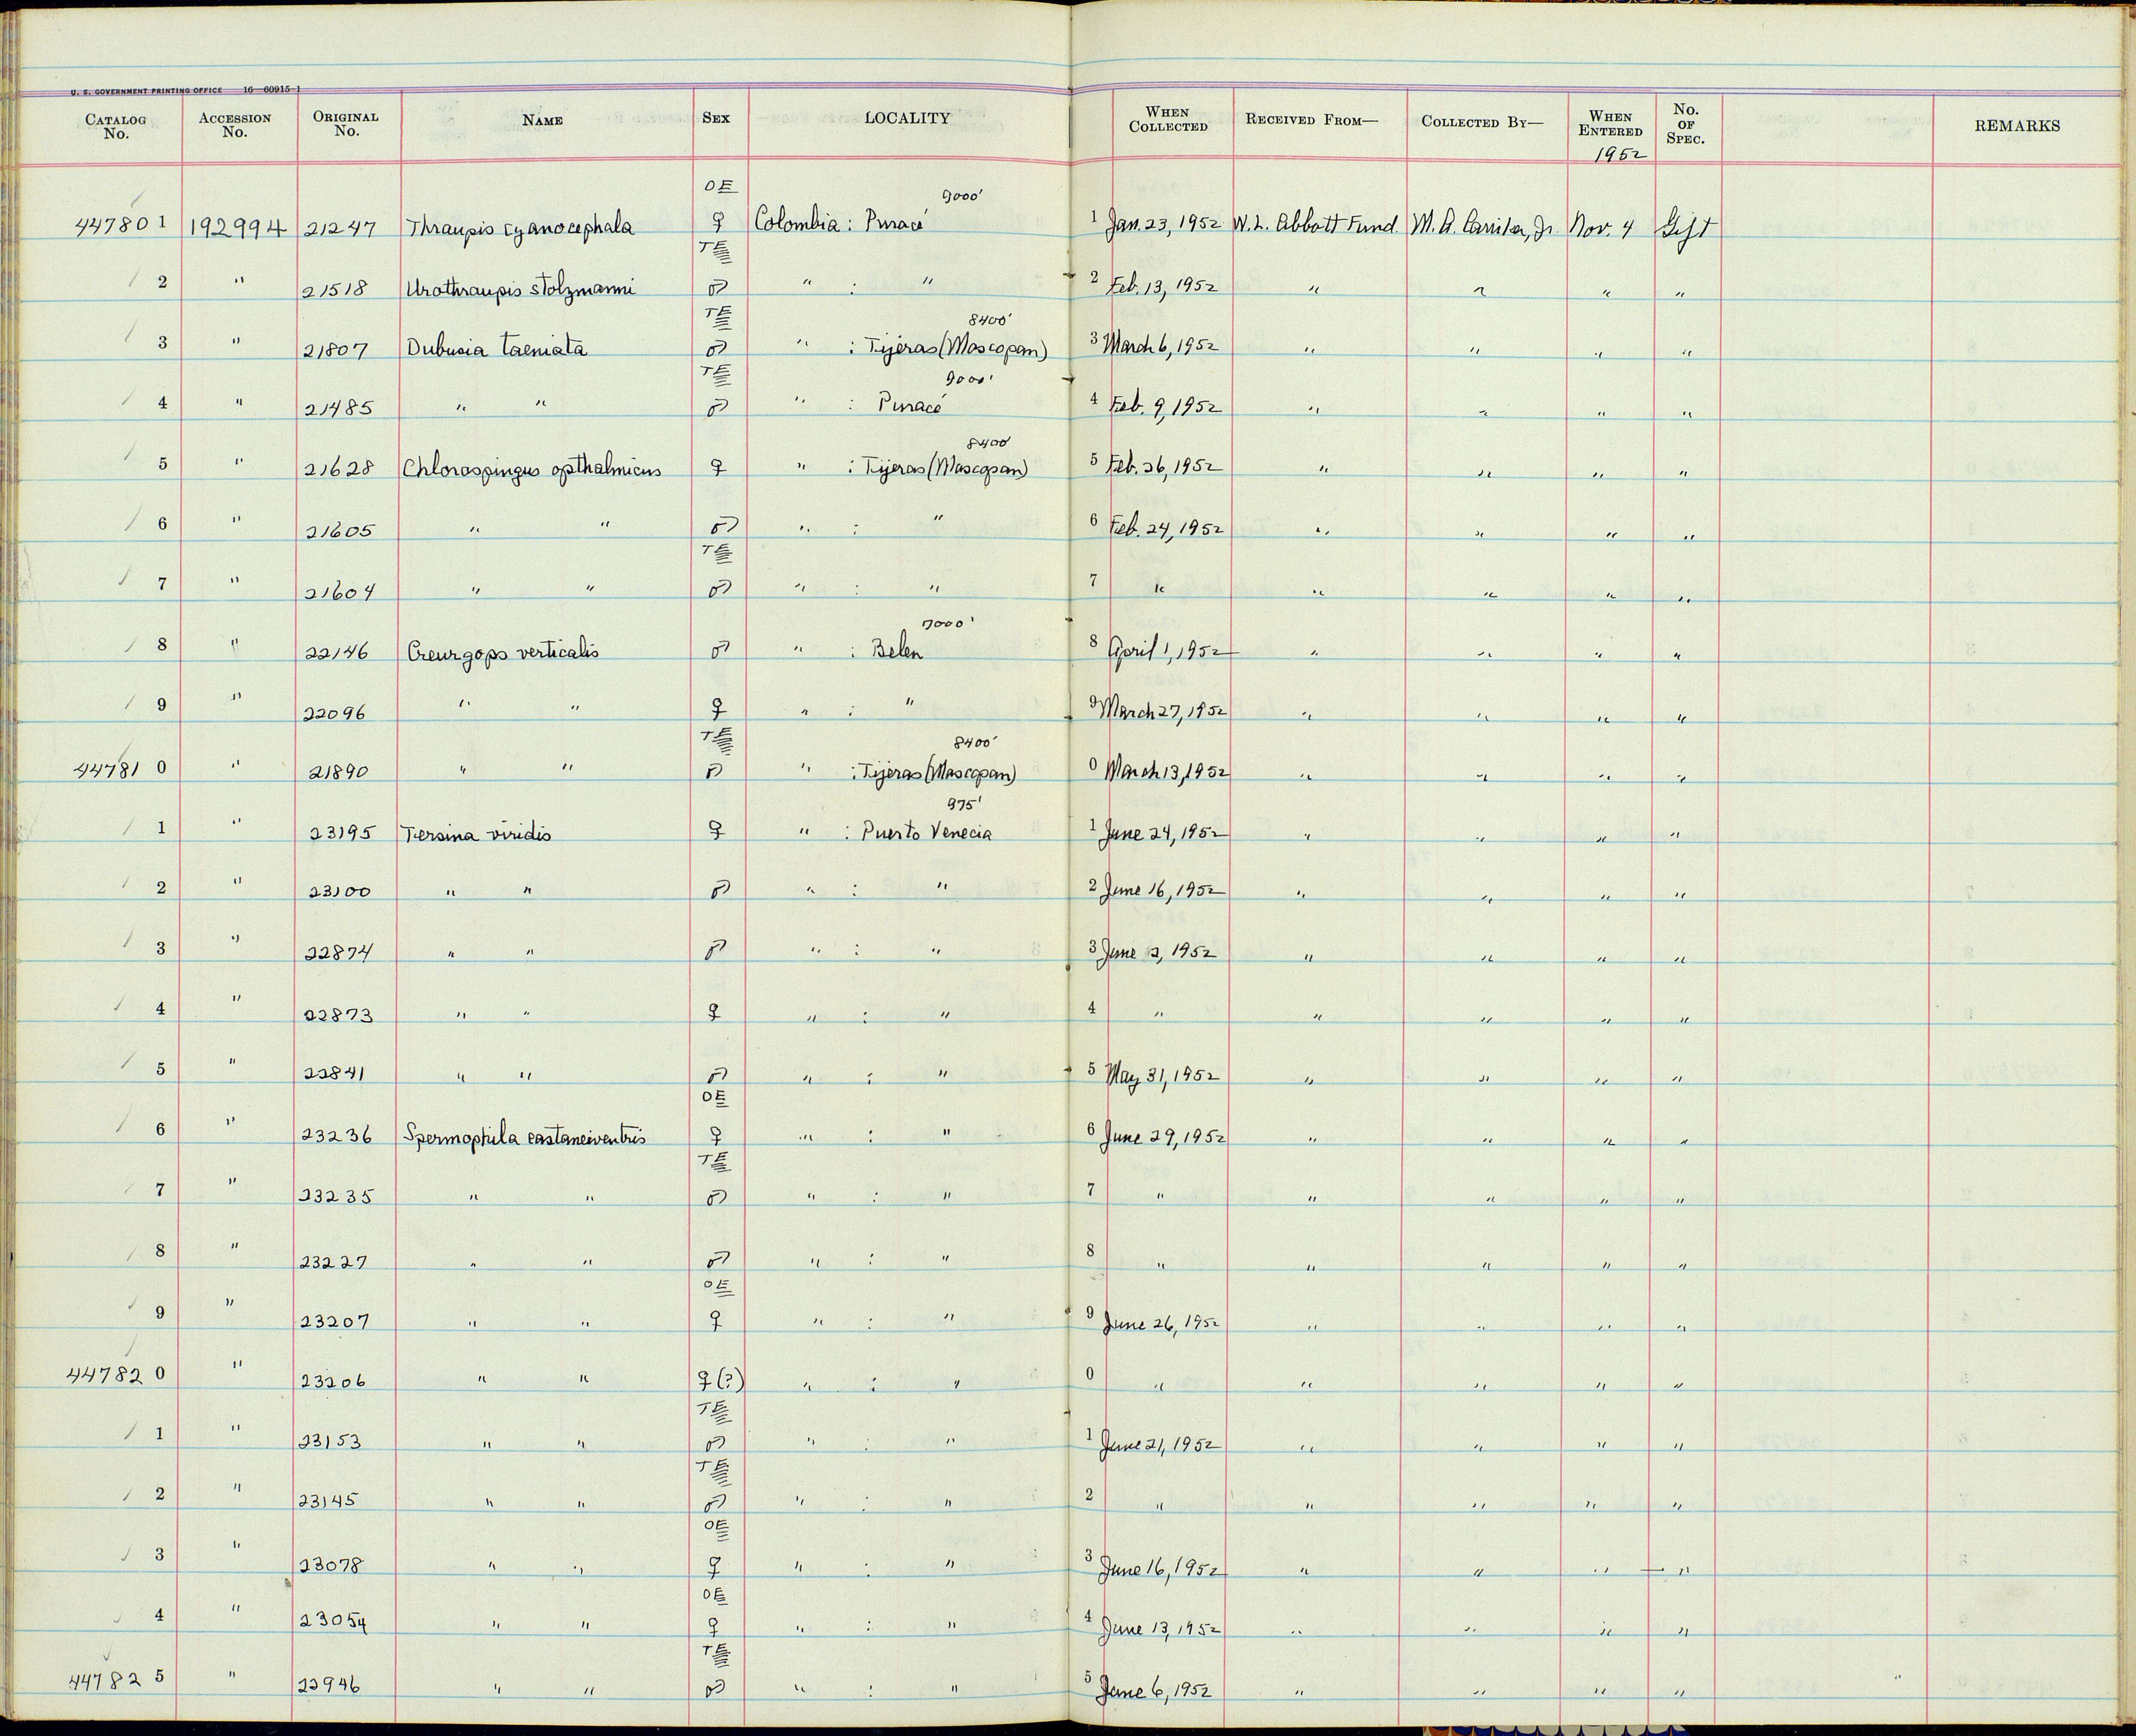 U. S. GOVERNMENT PRINTING OFFICE 16—60915-1
CATALOG No. ACCESSION No. ORIGINAL No. NAME SEX LOCALITY WHEN COLLECTED RECEIVED FROM— COLLECTED BY— WHEN ENTERED No. OF SPEC. REMARKS
1952
OE 9000'
447801 192994 21247 Thraupis cyanocephala ♀ Colombia : Puracé 1 Jan. 23, 1952 W. L. Abbott Fund M. A. Carriker, Jr. Nov. 4 Gift
TE
2 " 21518 Urothraupis stolzmanni ♂ " : " 2 Feb. 13, 1952 " " " "
TE 8400'
3 " 21807 Dubusia taeniata ♂ " : Tijeras (Moscopan) 3 March 6, 1952 " " " "
TE 9000'
4 " 21485 " " ♂ " : Puracé 4 Feb. 9, 1952 " " " "
8400'
5 " 21628 Chlorospingus opthalmicus ♀ " : Tijeras (Moscopan) 5 Feb. 26, 1952 " " " "
6 " 21605 " " ♂ " : " 6 Feb. 24, 1952 " " " "
TE
7 " 21604 " " ♂ " : " 7 " " " " "
7000'
8 " 22146 Creurgops verticalis ♂ " : Belen 8 April 1, 1952 " " " "
9 " 22096 " " ♀ " : " 9 March 27, 1952 " " " "
TE 8400'
447810 " 21890 " " ♂ " : Tijeras (Moscopan) 0 March 13, 1952 " " " "
975'
1 " 23195 Tersina viridis ♀ " : Puerto Venecia 1 June 24, 1952 " " " "
2 " 23100 " " ♂ " : " 2 June 16, 1952 " " " "
3 " 22874 " " ♂ " : " 3 June 2, 1952 " " " "
4 " 22873 " " ♀ " : " 4 " " " " "
5 " 22841 " " ♂ " : " 5 May 31, 1952 " " " "
OE
6 " 23236 Spermophila castaneiventris ♀ " : " 6 June 29, 1952 " " " "
TE
7 " 23235 " " ♂ " : " 7 " " " " "
8 " 23227 " " ♂ " : " 8 " " " " "
OE
9 " 23207 " " ♀ " : " 9 June 26, 1952 " " " "
447820 " 23206 " " ♀ (?) " : " 0 " " " " "
TE
1 " 23153 " " ♂ " : " 1 June 21, 1952 " " " "
TE
2 " 23145 " " ♂ " : " 2 " " " " "
OE
3 " 23078 " " ♀ " : " 3 June 16, 1952 " " " "
OE
4 " 23054 " " ♀ " : " 4 June 13, 1952 " " " "
TE
447825 " 22946 " " ♂ " : " 5 June 6, 1952 " " " "